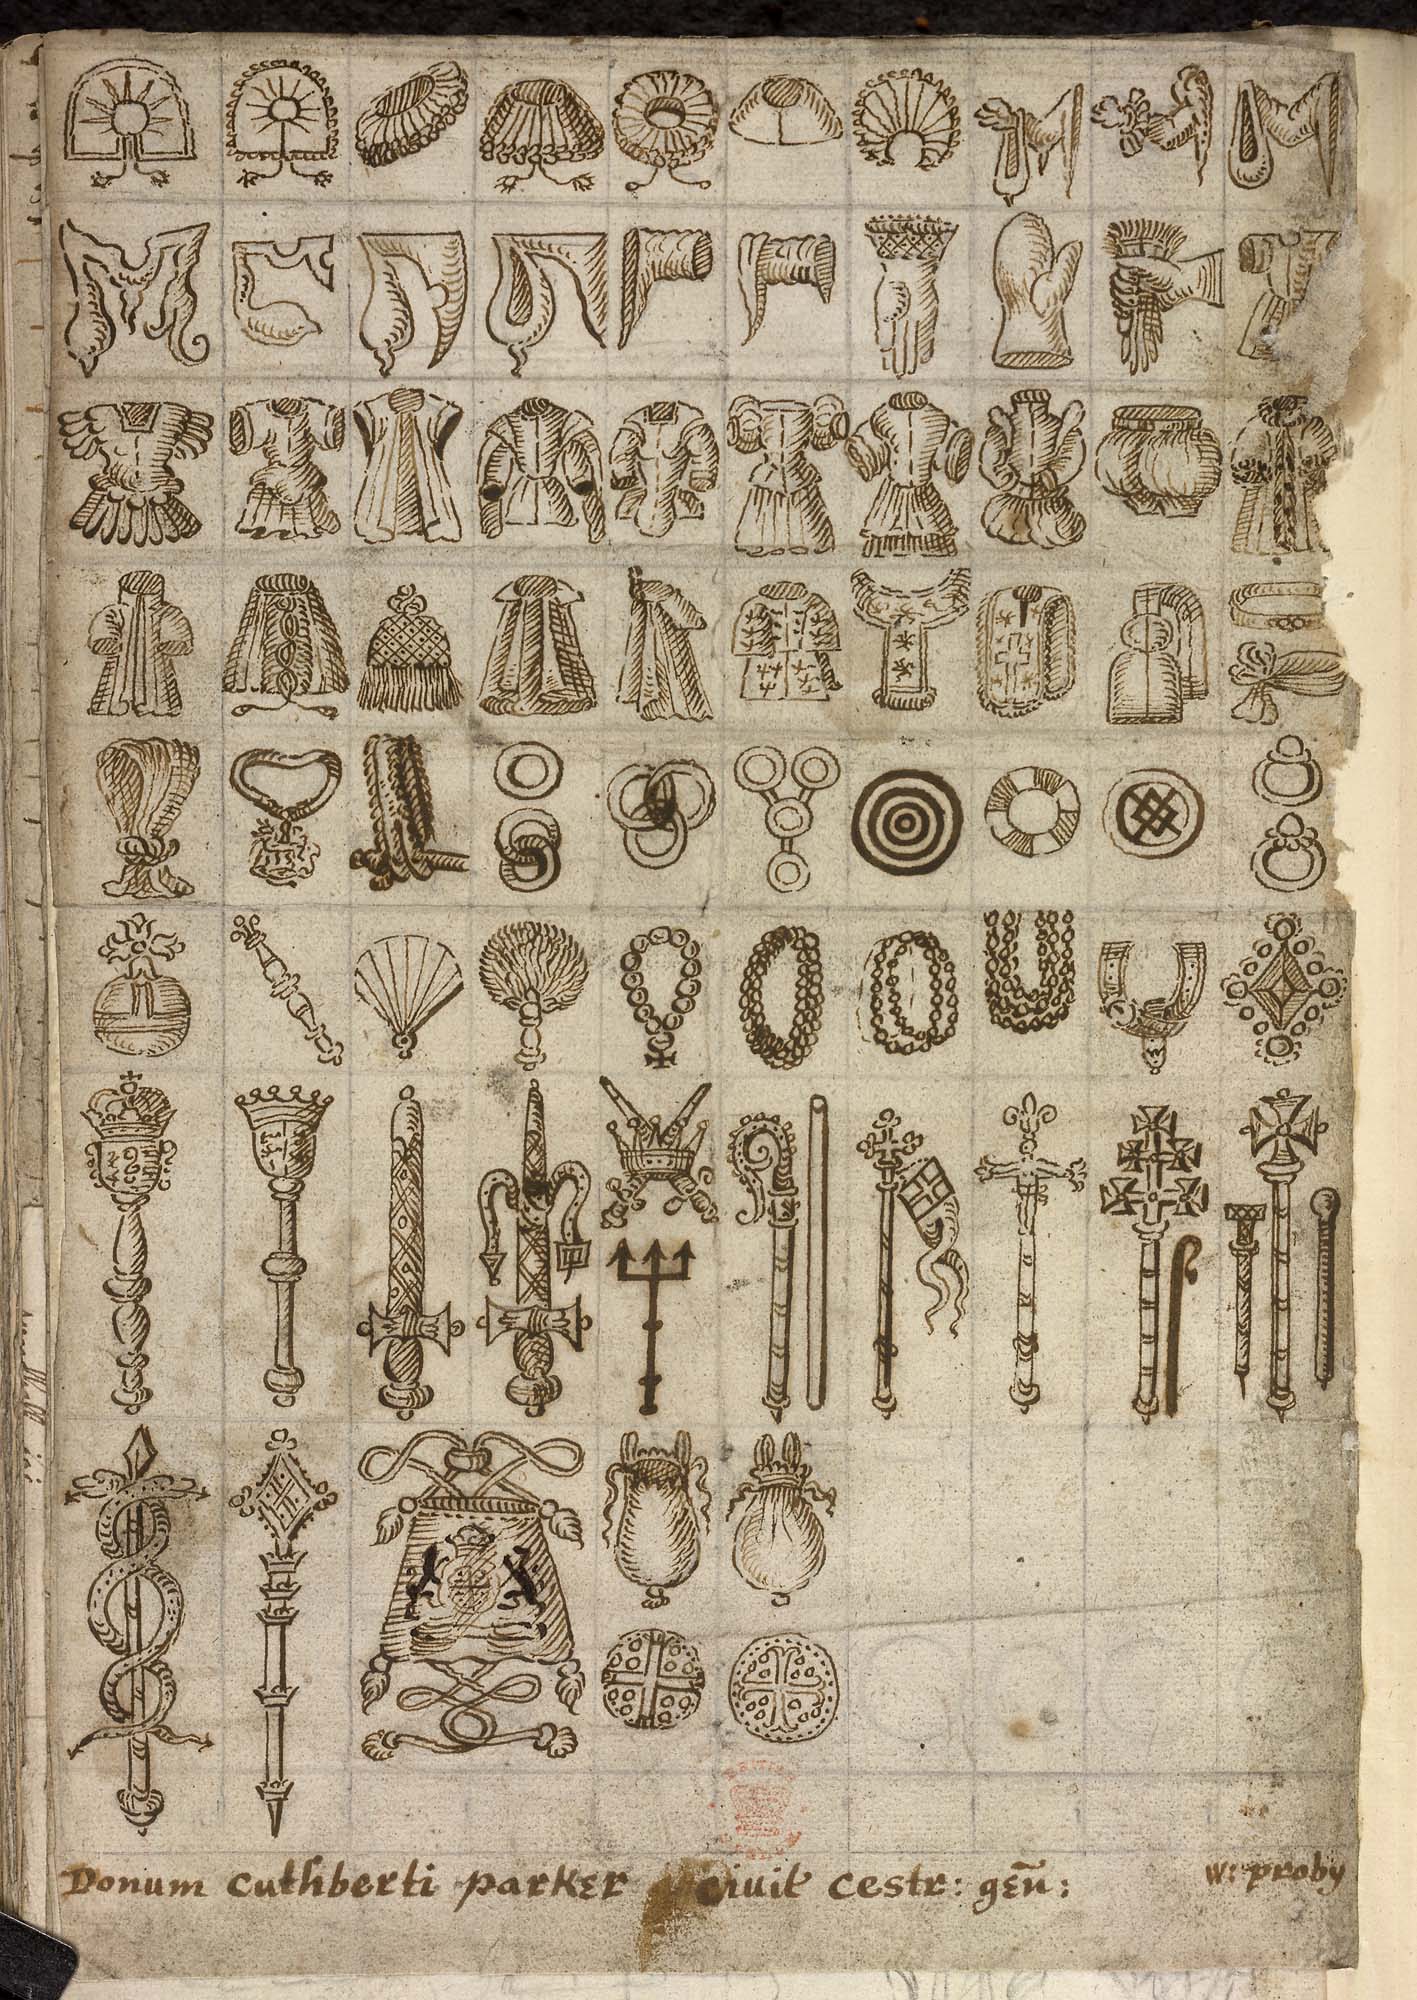 Donum Cuthberti Parker Civit Cestr: gen̄:
W: Proby